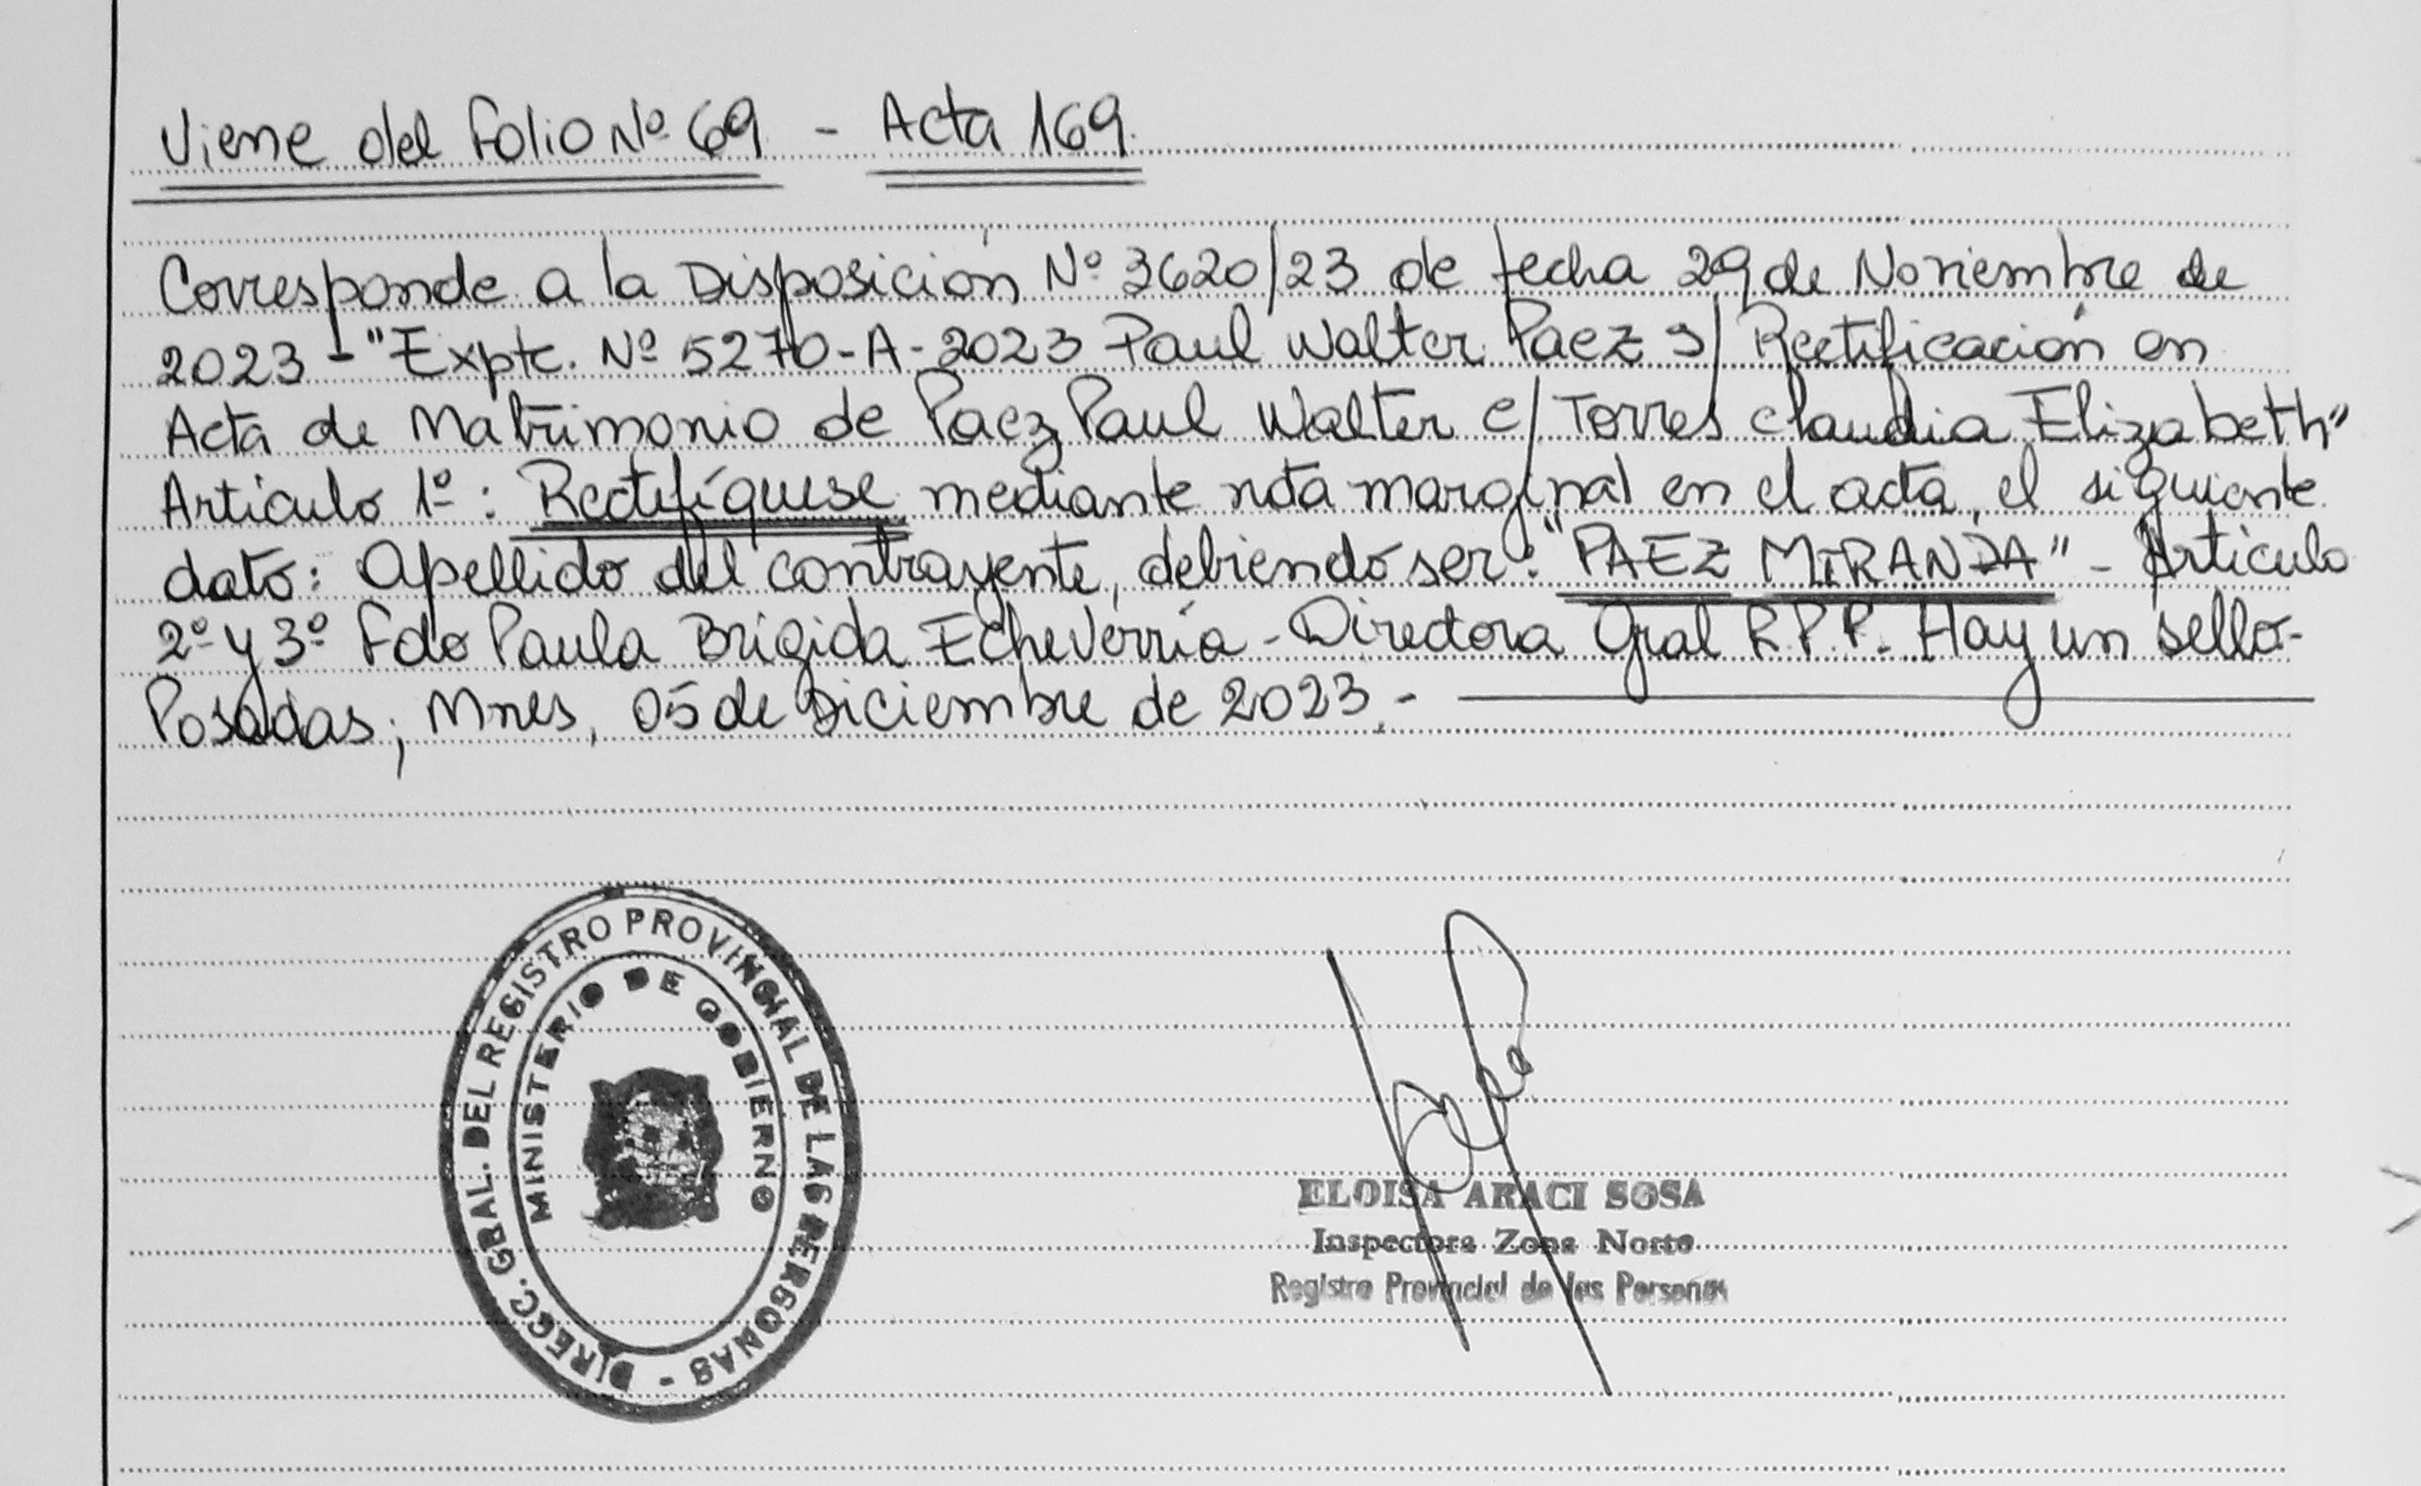 Viene del Folio Nº 69 - Acta 169.
Corresponde a la Disposición Nº 3620/23 de fecha 29 de Noviembre de
2023 - "Expte. Nº 5270-A-2023 Paul Walter Paez s/ Rectificación en
Acta de Matrimonio de Paez Paul Walter c/ Torres Claudia Elizabeth"
Articulo 1º: Rectifíquese mediante nota marginal en el acta, el siguiente
dato: Apellido del contrayente, debiendo ser: "PAEZ MIRANDA" - Articulo
2º y 3º Fdo Paula Brigida Echeverría - Directora Gral R.P.P. Hay un sello-
Posadas; Mnes, 05 de Diciembre de 2023.-
DIRECC. GRAL. DEL REGISTRO PROVINCIAL DE LAS PERSONAS -
MINISTERIO DE GOBIERNO
ELOISA ARACI SOSA
Inspectora Zona Norte
Registro Provincial de las Personas